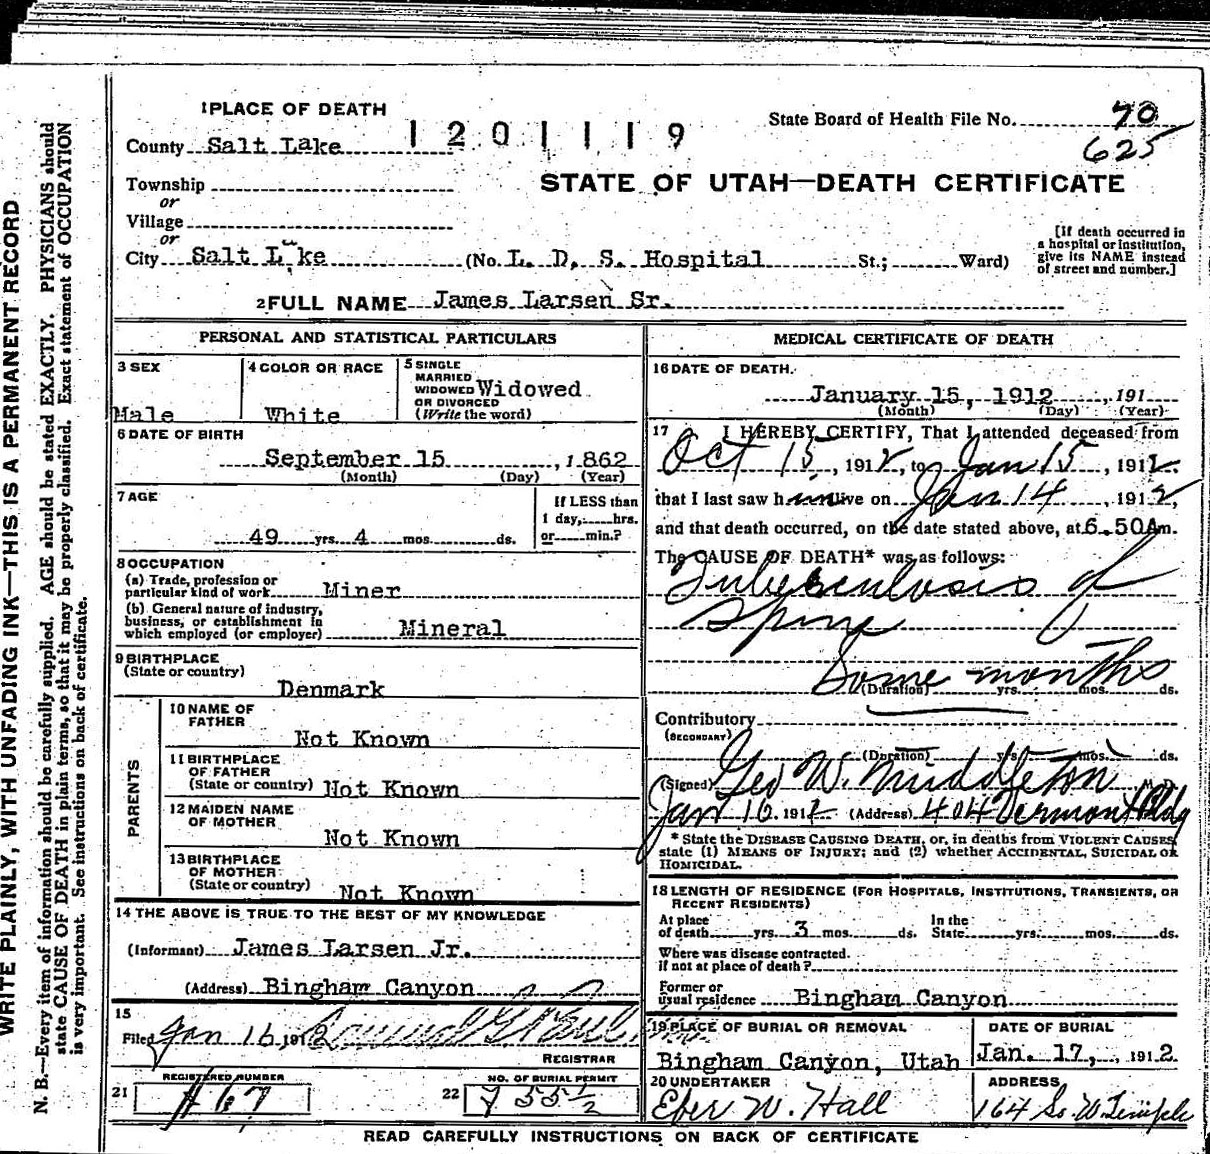 1 PLACE OF DEATH
County Salt Lake
1201119
State Board of Health File No. 70
625
STATE OF UTAH—DEATH CERTIFICATE
Township
or
Village
or
City Salt Lake (No. L. D. S. Hospital St.; Ward)
[If death occurred in
a hospital or institution,
give its NAME instead
of street and number.]
2 FULL NAME James Larsen Sr.
PERSONAL AND STATISTICAL PARTICULARS
3 SEX
Male
4 COLOR OR RACE
White
5 SINGLE
MARRIED
WIDOWED Widowed
OR DIVORCED
(Write the word)
6 DATE OF BIRTH
September 15, 1862
(Month) (Day) (Year)
7 AGE
49 yrs. 4 mos. ds.
If LESS than
1 day, hrs.
or min.?
8 OCCUPATION
(a) Trade, profession or
particular kind of work Miner
(b) General nature of industry,
business, or establishment in
which employed (or employer) Mineral
9 BIRTHPLACE
(State or country)
Denmark
PARENTS
10 NAME OF
FATHER
Not Known
11 BIRTHPLACE
OF FATHER
(State or country) Not Known
12 MAIDEN NAME
OF MOTHER
Not Known
13 BIRTHPLACE
OF MOTHER
(State or country)
Not Known
14 THE ABOVE IS TRUE TO THE BEST OF MY KNOWLEDGE
(Informant) James Larsen Jr.
(Address) Bingham Canyon
15
Filed Jan 16, 1912
REGISTRAR
21 REGISTERED NUMBER
22 NO. OF BURIAL PERMIT
MEDICAL CERTIFICATE OF DEATH
16 DATE OF DEATH.
January 15, 1912, 191
(Month) (Day) (Year)
17 I HEREBY CERTIFY, That I attended deceased from
Oct 15, 1912, to Jan 15, 1912.
that I last saw him alive on Jan 14, 1912,
and that death occurred, on the date stated above, at 6.50 Am.
The CAUSE OF DEATH* was as follows:
Tuberculosis of
Spine
Some months
(Duration) yrs. mos. ds.
Contributory
(SECONDARY)
(Duration) yrs. mos. ds.
(Signed) Geo W. Middleton M. D.
Jan 16, 1912 (Address) 404 Vermont Bldg
* State the DISEASE CAUSING DEATH, or, in deaths from VIOLENT CAUSES,
state (1) MEANS OF INJURY; and (2) whether ACCIDENTAL, SUICIDAL OR
HOMICIDAL.
18 LENGTH OF RESIDENCE (FOR HOSPITALS, INSTITUTIONS, TRANSIENTS, OR
RECENT RESIDENTS)
At place
of death yrs. 3 mos. ds.
In the
State yrs. mos. ds.
Where was disease contracted.
if not at place of death?
Former or
usual residence Bingham Canyon
19 PLACE OF BURIAL OR REMOVAL
Bingham Canyon, Utah
DATE OF BURIAL
Jan. 17, 1912.
20 UNDERTAKER
Eber W. Hall
ADDRESS
164 So. W Temple
READ CAREFULLY INSTRUCTIONS ON BACK OF CERTIFICATE
WRITE PLAINLY, WITH UNFADING INK—THIS IS A PERMANENT RECORD
N. B.—Every item of information should be carefully supplied. AGE should be stated EXACTLY. PHYSICIANS should
state CAUSE OF DEATH in plain terms, so that it may be properly classified. Exact statement of OCCUPATION
is very important. See instructions on back of certificate.